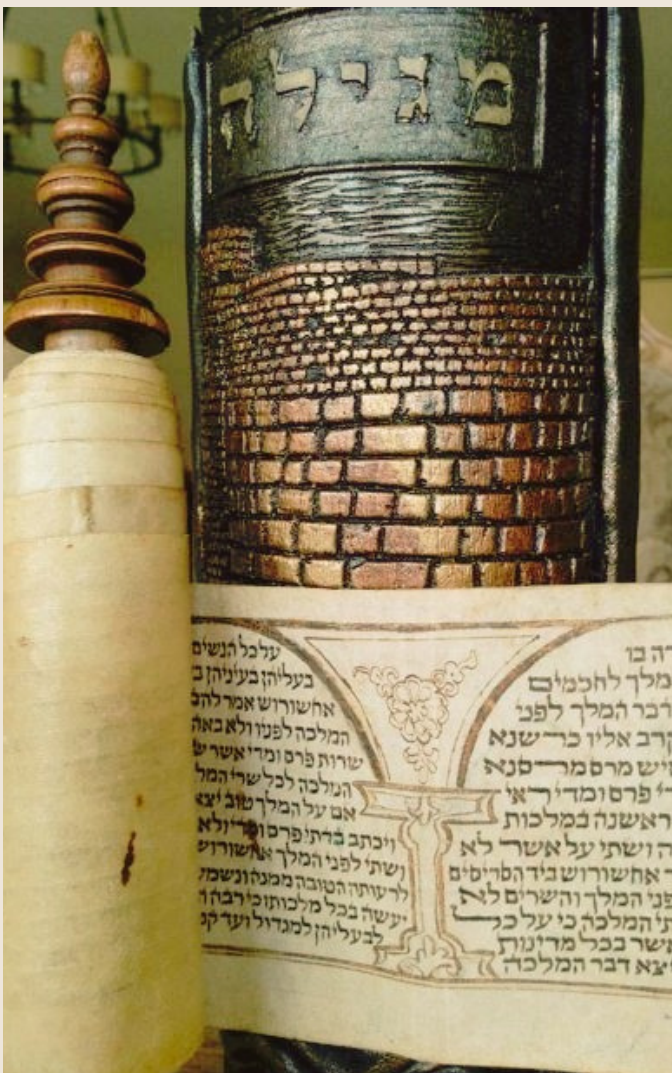 מגילה
רה בו
מלך לחכמים
דבר המלך לפני
קרב אליו כרשנא
יש מרס מרסנא
י פרס ומדי ראי
ראשנה במלכות
ה ושתי על אשר לא
ר אחשורוש ביד הסריסים
פני המלך והשרים לא
תי המלכה כי על כל
אשר בכל מדינות
יצא דבר המלכה
על כל הנשים
בעליהן בעיניהן ב
אחשורוש אמר להב
המלכה לפניו ולא באה
שרות פרס ומדי אשר ש
המלכה לכל שרי המל
אם על המלך טוב יצא
ויכתב בדתי פרס ומדי ולא
ושתי לפני המלך אחשורוש
לרעותה הטובה ממנה ונשמע
יעשה בכל מלכותו כי רבה ה
לבעליהן למגדול ועד קט